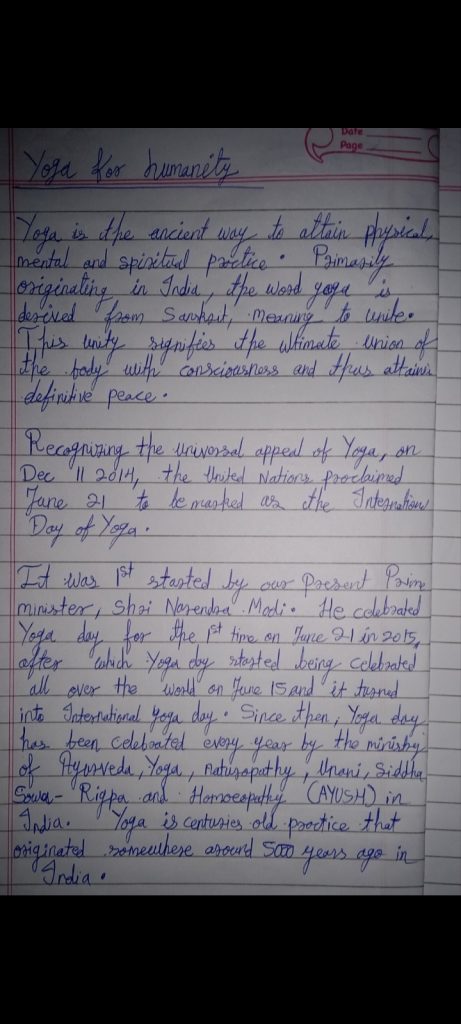 Date
Page
Yoga for humanity
Yoga is the ancient way to attain physical,
mental and spiritual practice. Primarily
originating in India, the word yoga is
derived from Sanskrit, meaning to unite.
This unity signifies the ultimate union of
the body with consciousness and thus attains
definitive peace.
Recognizing the universal appeal of Yoga, on
Dec 11 2014, the United Nations proclaimed
June 21 to be marked as the International
Day of Yoga.
It was 1st started by our Present Prime
minister, Shri Narendra Modi. He celebrated
Yoga day for the 1st time on June 21 in 2015,
after which Yoga day started being celebrated
all over the world on June 15 and it turned
into International Yoga day. Since then, Yoga day
has been celebrated every year by the ministry
of Ayurveda, Yoga, Naturopathy, Unani, Siddha
Sowa-Rigpa and Homoeopathy (AYUSH) in
India. Yoga is centuries old practice that
originated somewhere around 5000 years ago in
India.